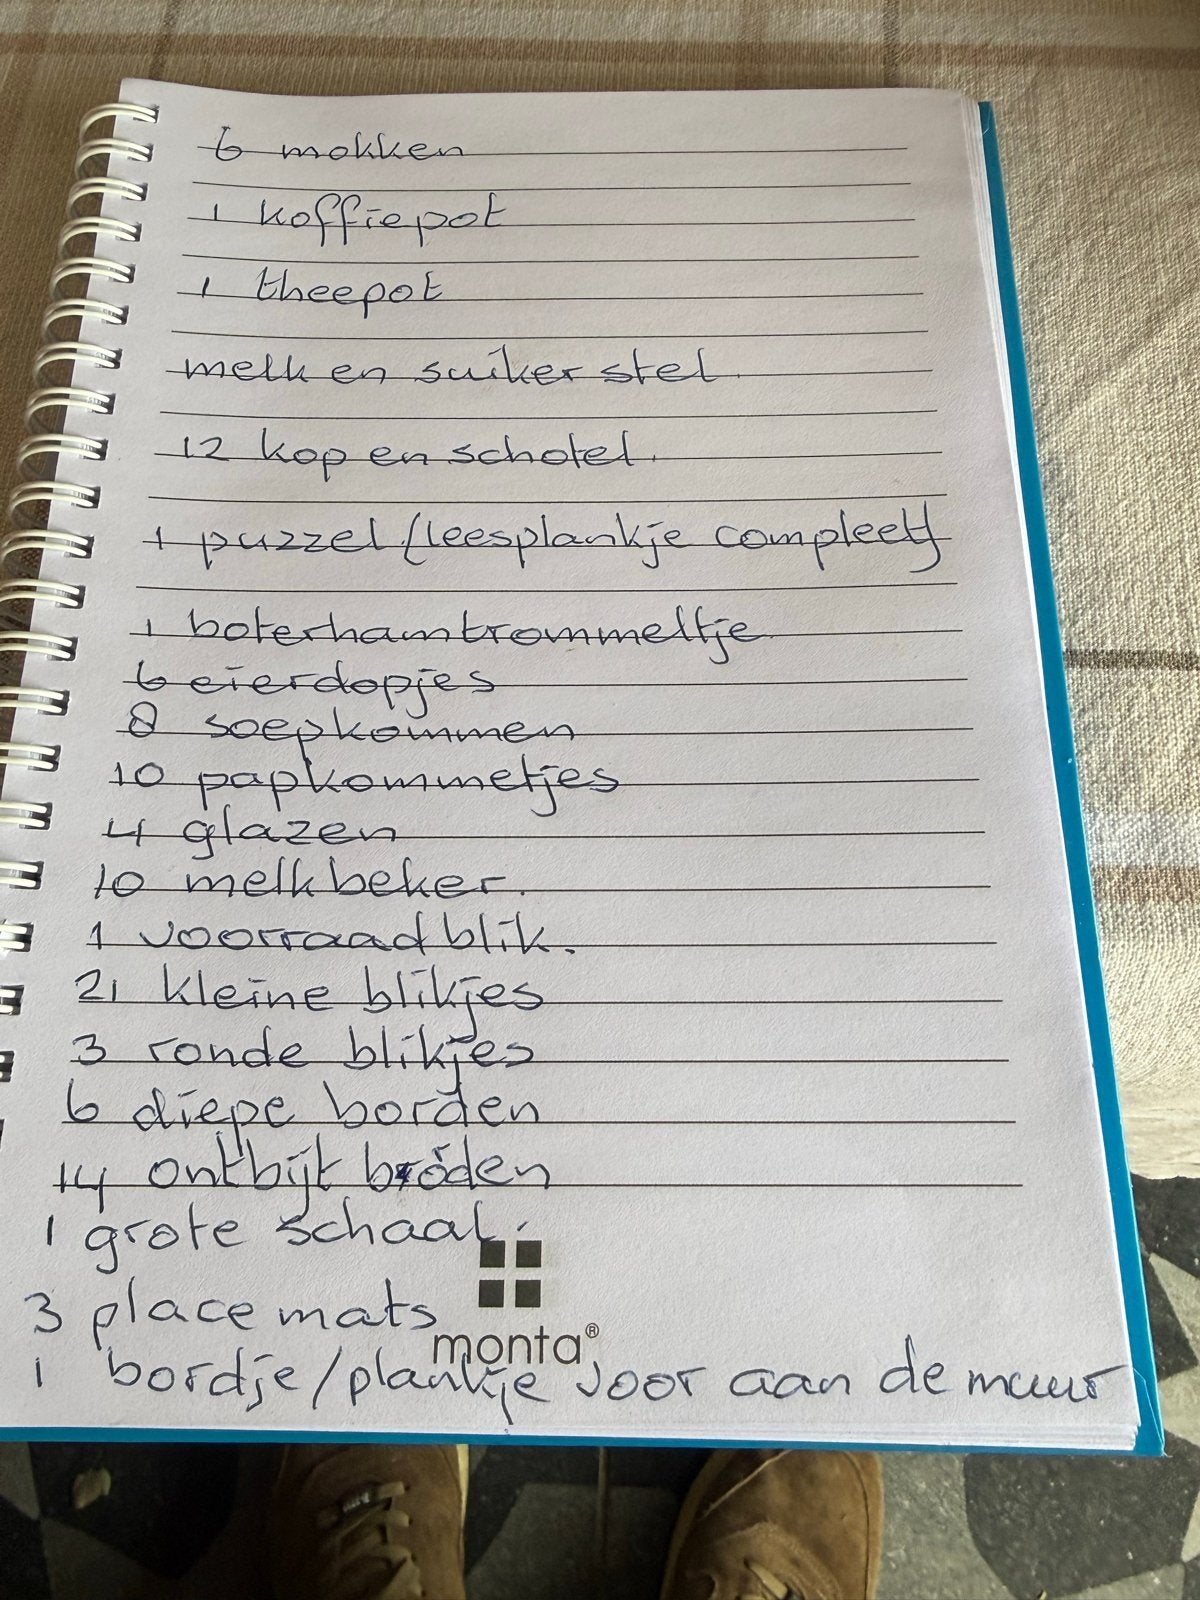 6 mokken
1 koffiepot
1 theepot
melk en suiker stel.
12 kop en schotel.
1 puzzel (leesplankje compleet)
1 boterhamtrommeltje
6 eierdopjes
8 soepkommen
10 papkommetjes
4 glazen
10 melkbeker.
1 voorraadblik.
21 kleine blikjes
3 ronde blikjes
6 diepe borden
14 ontbijt bróden
1 grote schaal.
3 place mats
monta®
1 bordje/plankje voor aan de muur